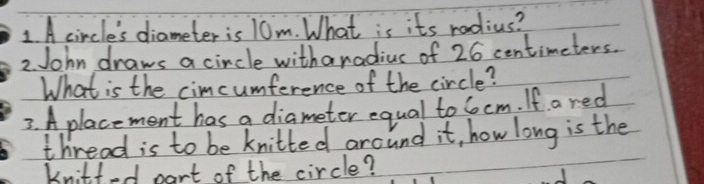 1. A circle's diameter is 10m. What is its radius?
2. John draws a circle with a radius of 26 centimeters.
What is the cimcumference of the circle?
3. A placement has a diameter equal to 6cm. If a red
thread is to be knitted around it, how long is the
knitted part of the circle?